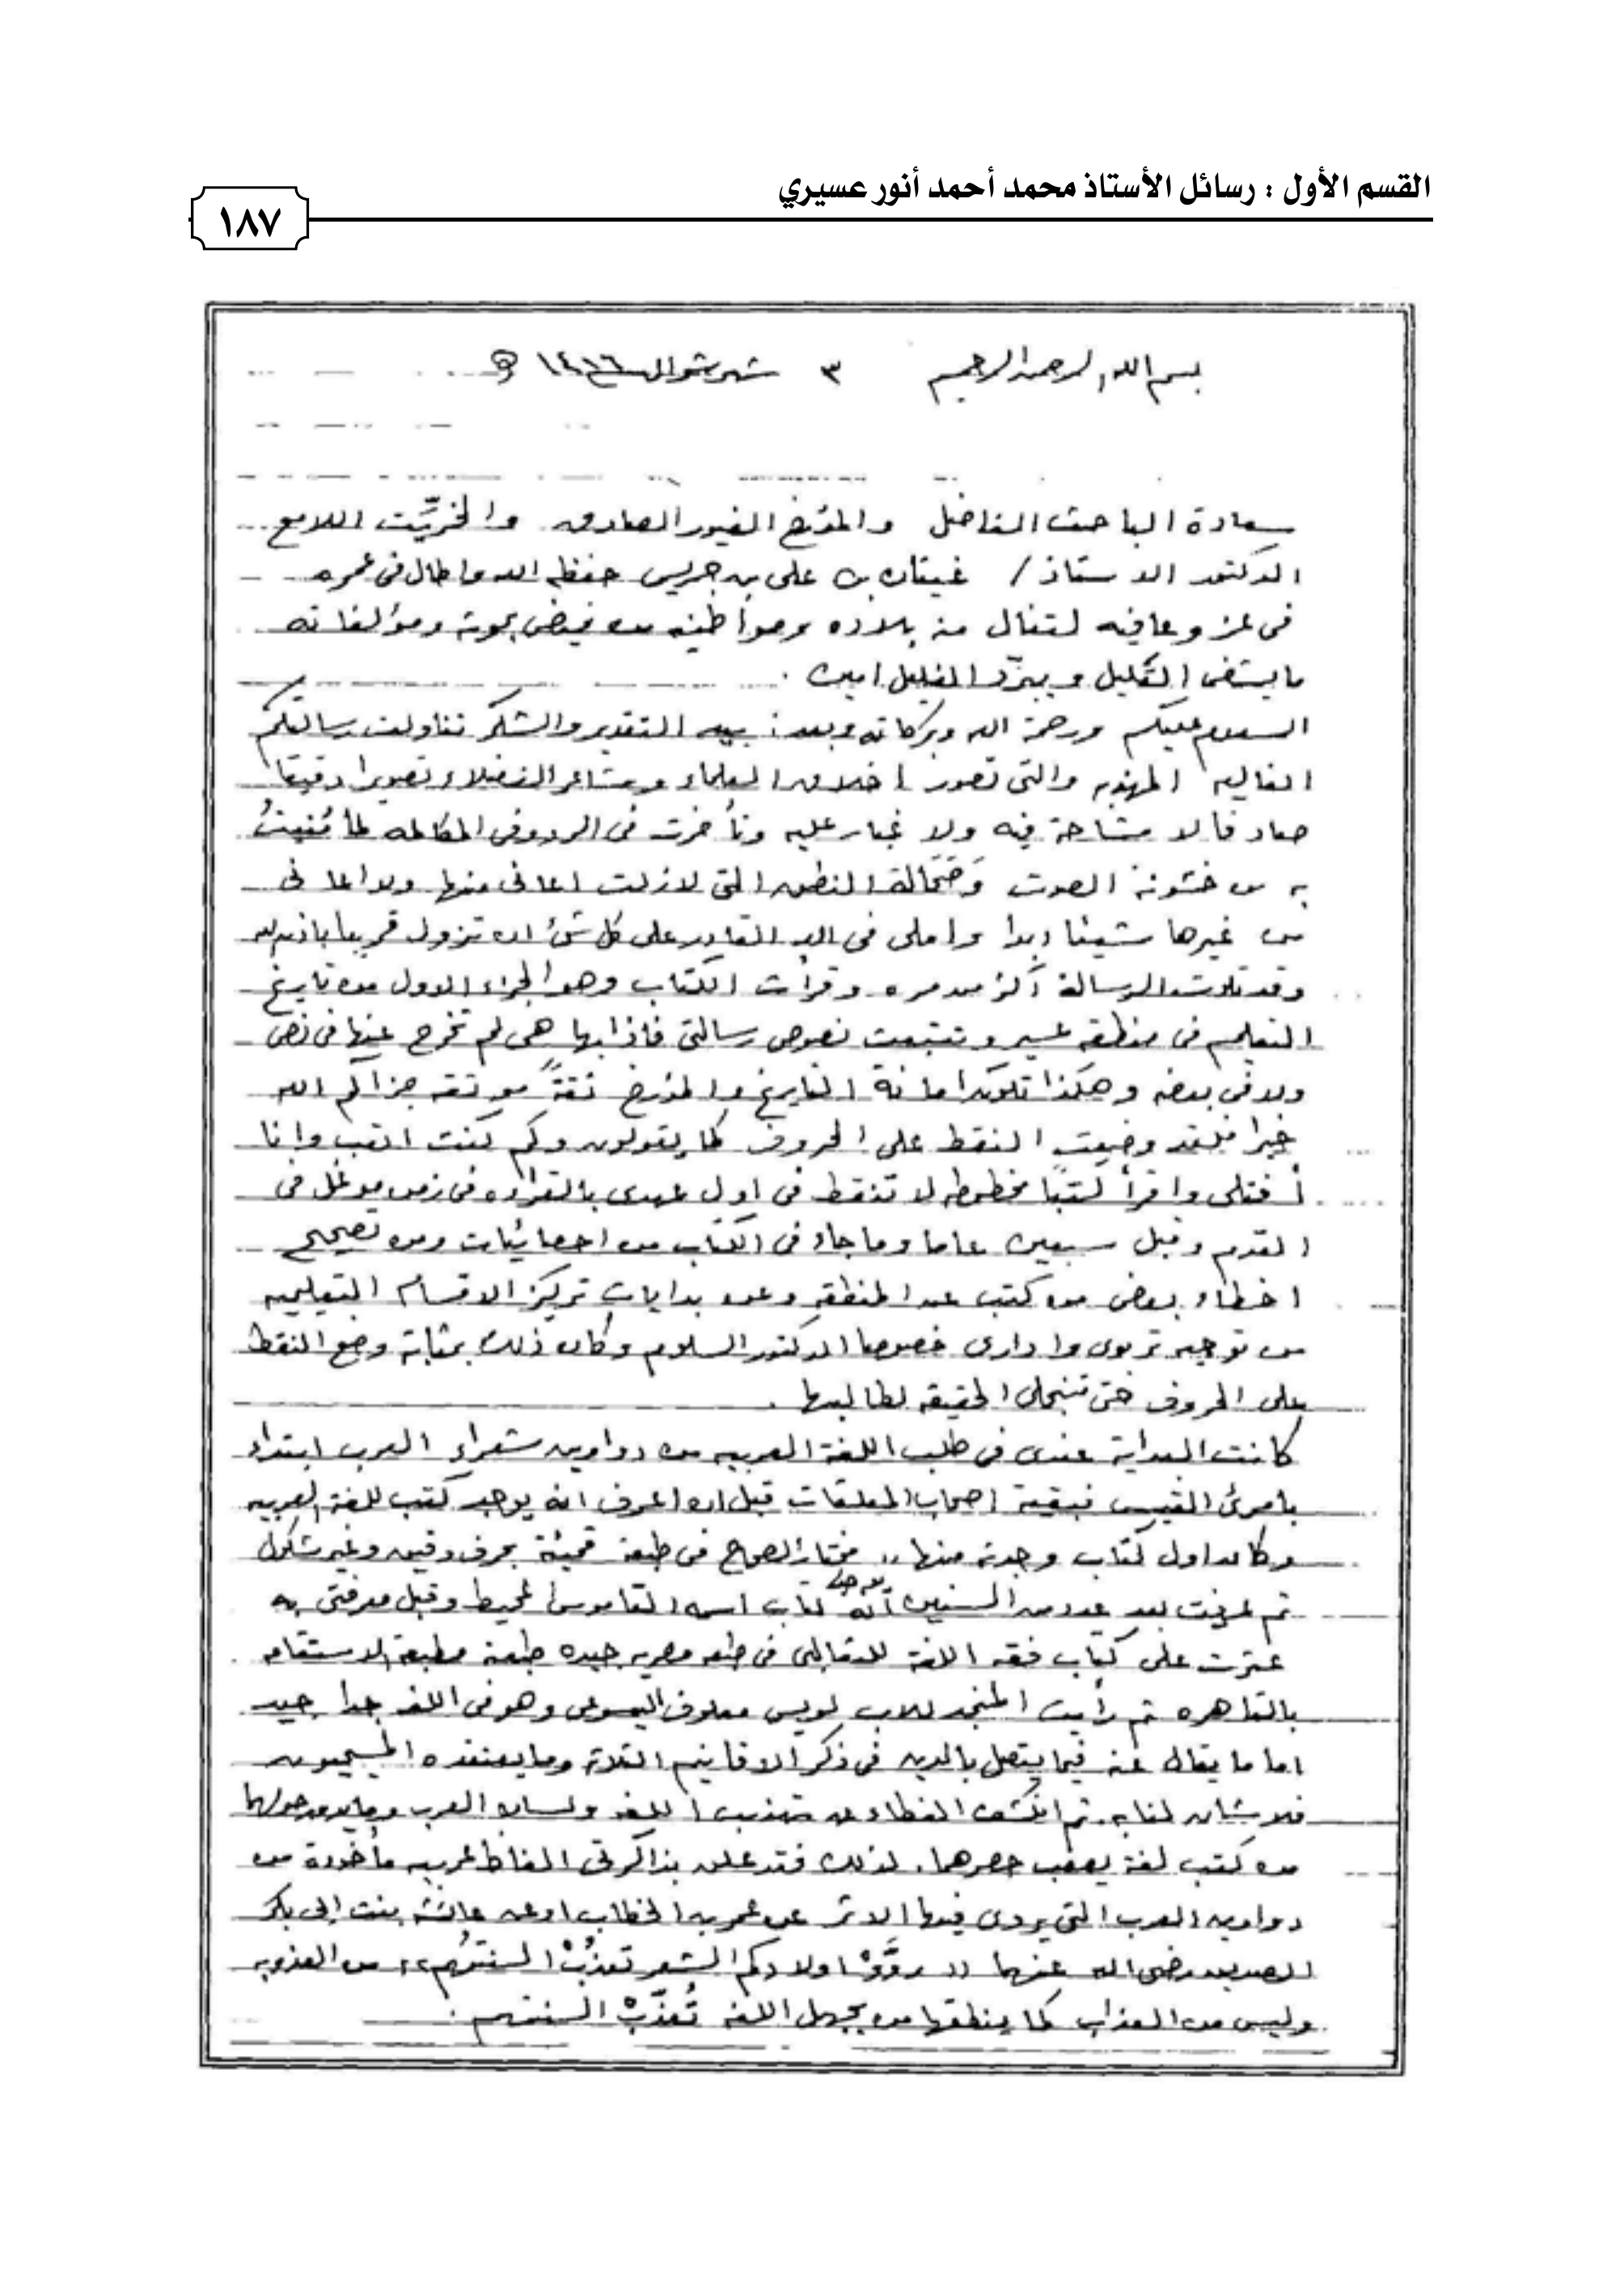 القسم الأول : رسائل الأستاذ محمد أحمد أنور عسيري
١٨٧
بسم الله الرحمن الرحيم ٣ شهر شوال ١٤١٦ هـ
سعادة الباحث الفاضل والمؤرخ الغيور الصادق والخرِّيت اللامع
الدكتور الاستاذ / غيثان بن على بن جريس حفظه الله واطال فى عمره
فى عز وعافيه لتنال منه بلاده ومواطنيه من فيض بحوثه ومؤلفاته
ما يشفى الغليل ويبرّد الغليل امين .
السلام عليكم ورحمة الله وبركاته وبعد : بيد التقدير والشكر تناولت رسالتكم
الغاليه المهذبه والتى تصور اخلاق العلماء ومشاعر الفضلاء تصويرا دقيقا
صادقا لا مشاحة فيه ولا غبار عليه وتأخرت فى الرد وفى المكالمه لما مُنيتُ
به من خشونة الصوت وضحالة النطق التى لازلت اعانى منها ولا اعانى
من غيرها شيئا ابدا واملى فى الله القادر على كل شئ ان تزول قريبا باذن الله
وقد تلوت الرسالة اكثر من مره وقرأت الكتاب وهو الجزء الاول من تاريخ
التعليم فى منطقه عسير وتتبعت نصوص رسالتى فاذا بها هى لم تخرج عنها فى نص
ولا فى بعضه وهكذا تكون امانة التاريخ والمؤرخ ثقةً موثقه جزاكم الله
خيرا فلقد وضعت النقط على الحروف كما يقولون وكم كنت اتعب وانا
أفتلى واقرأ كتبًا مخطوطه لا تنقط فى اول عهدى بالقراءه فى زمن موغل فى
القدم وقبل سبعين عاما وما جاء فى الكتاب من احصائيات ومن تصحيح
اخطاء بعض من كتب عن المنطقه وعن بدايات تركيز الاقسام التعليميه
من توجيه تربوى وادارى خصوصا الدكتور السلوم وكان ذلك بمثابة وضع النقط
على الحروف حتى تنجلى الحقيقه لطالبها .
كانت البداية عندى فى طلب اللغة العربيه من دواوين شعراء العرب ابتداء
بامرئ القيس فبقية اصحاب المعلقات قبل ان اعرف انه يوجد كتب للغة العربيه
وكان اول كتاب وجدته منها ,, مختار الصحاح فى طبعة قميئة بحرف دقيق وغير مشكول
ثم عرفت بعد عدد من السنين أنه كتاب اسمه القاموس المحيط وقبل معرفتى به
عثرت على كتاب فقه اللغة للثعالبى فى طبعه مصريه جيده طبعة مطبعة الاستقامه
بالقاهره ثم رأيت المنجد للاب لويس معلوف اليسوعى وهو فى اللغه جدا جيد
اما ما يقال عنه فيما يتصل بالدين فى ذكر الاقانيم الثلاثه وما يعتقده المسيحيون
فلا شان لنا به . ثم انكشف الغطاء عن تهذيب اللغه ولسان العرب وما يدور حولهما
من كتب لغة يصعب حصرهما . لذلك فقد علق بذاكرتى الفاظ عربيه مأخوذة من
دواوين العرب التى يروى فيها الاثر عن عمر بن الخطاب او عن عائشة بنت ابى بكر
الصديق رضى الله عنهما (( روُّوْا اولادكم الشعر تعذُبْ السنتهُم ,, من العذوبه
وليس من العذاب كما ينطقها من يجهل اللغه تُعذّبْ السنتهم .